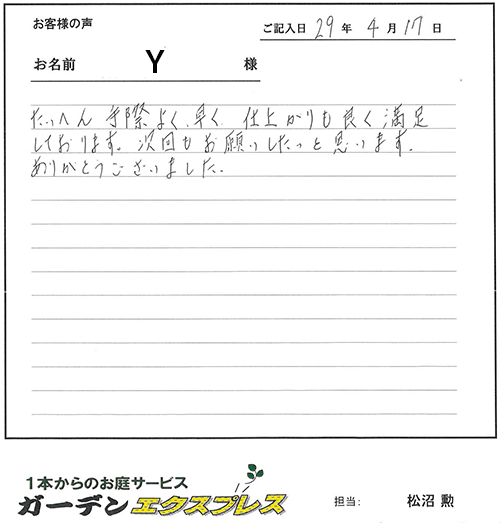 お客様の声
ご記入日 29 年 4 月 17 日
お名前 Y 様
たいへん 手際よく、早く 仕上がりも良く満足
しております。次回もお願いしたいと思います。
ありがとうございました。
1本からのお庭サービス
ガーデンエクスプレス
担当: 松沼 勲